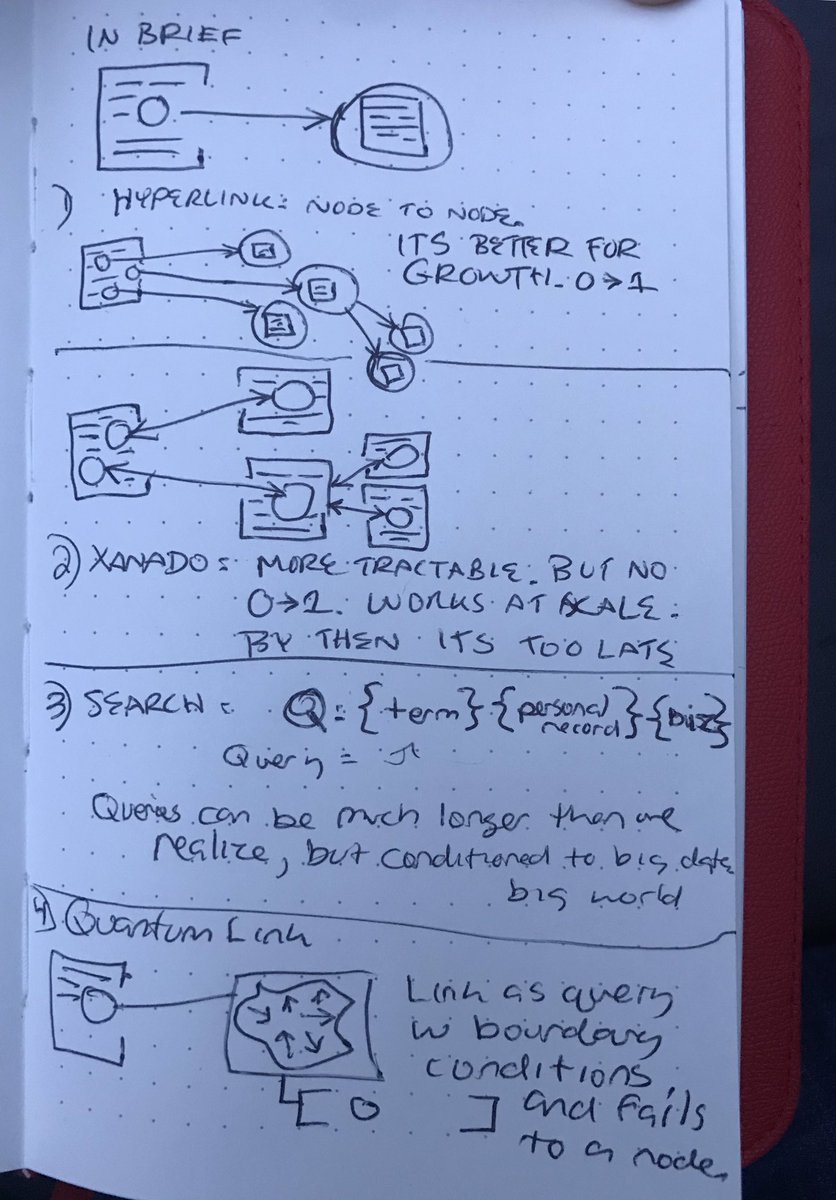 IN BRIEF
1) HYPERLINK: NODE TO NODE.
ITS BETTER FOR
GROWTH. 0→1
2) XANADO: MORE TRACTABLE. BUT NO
0→1. WORKS AT SCALE.
BY THEN ITS TOO LATE
3) SEARCH = Q = {term} {personal record} {biz}
Query =
Queries can be much longer than we
realize, but conditioned to big data
big world
4) Quantum Link
Link as query
w boundary
conditions,
and fails
to a node.